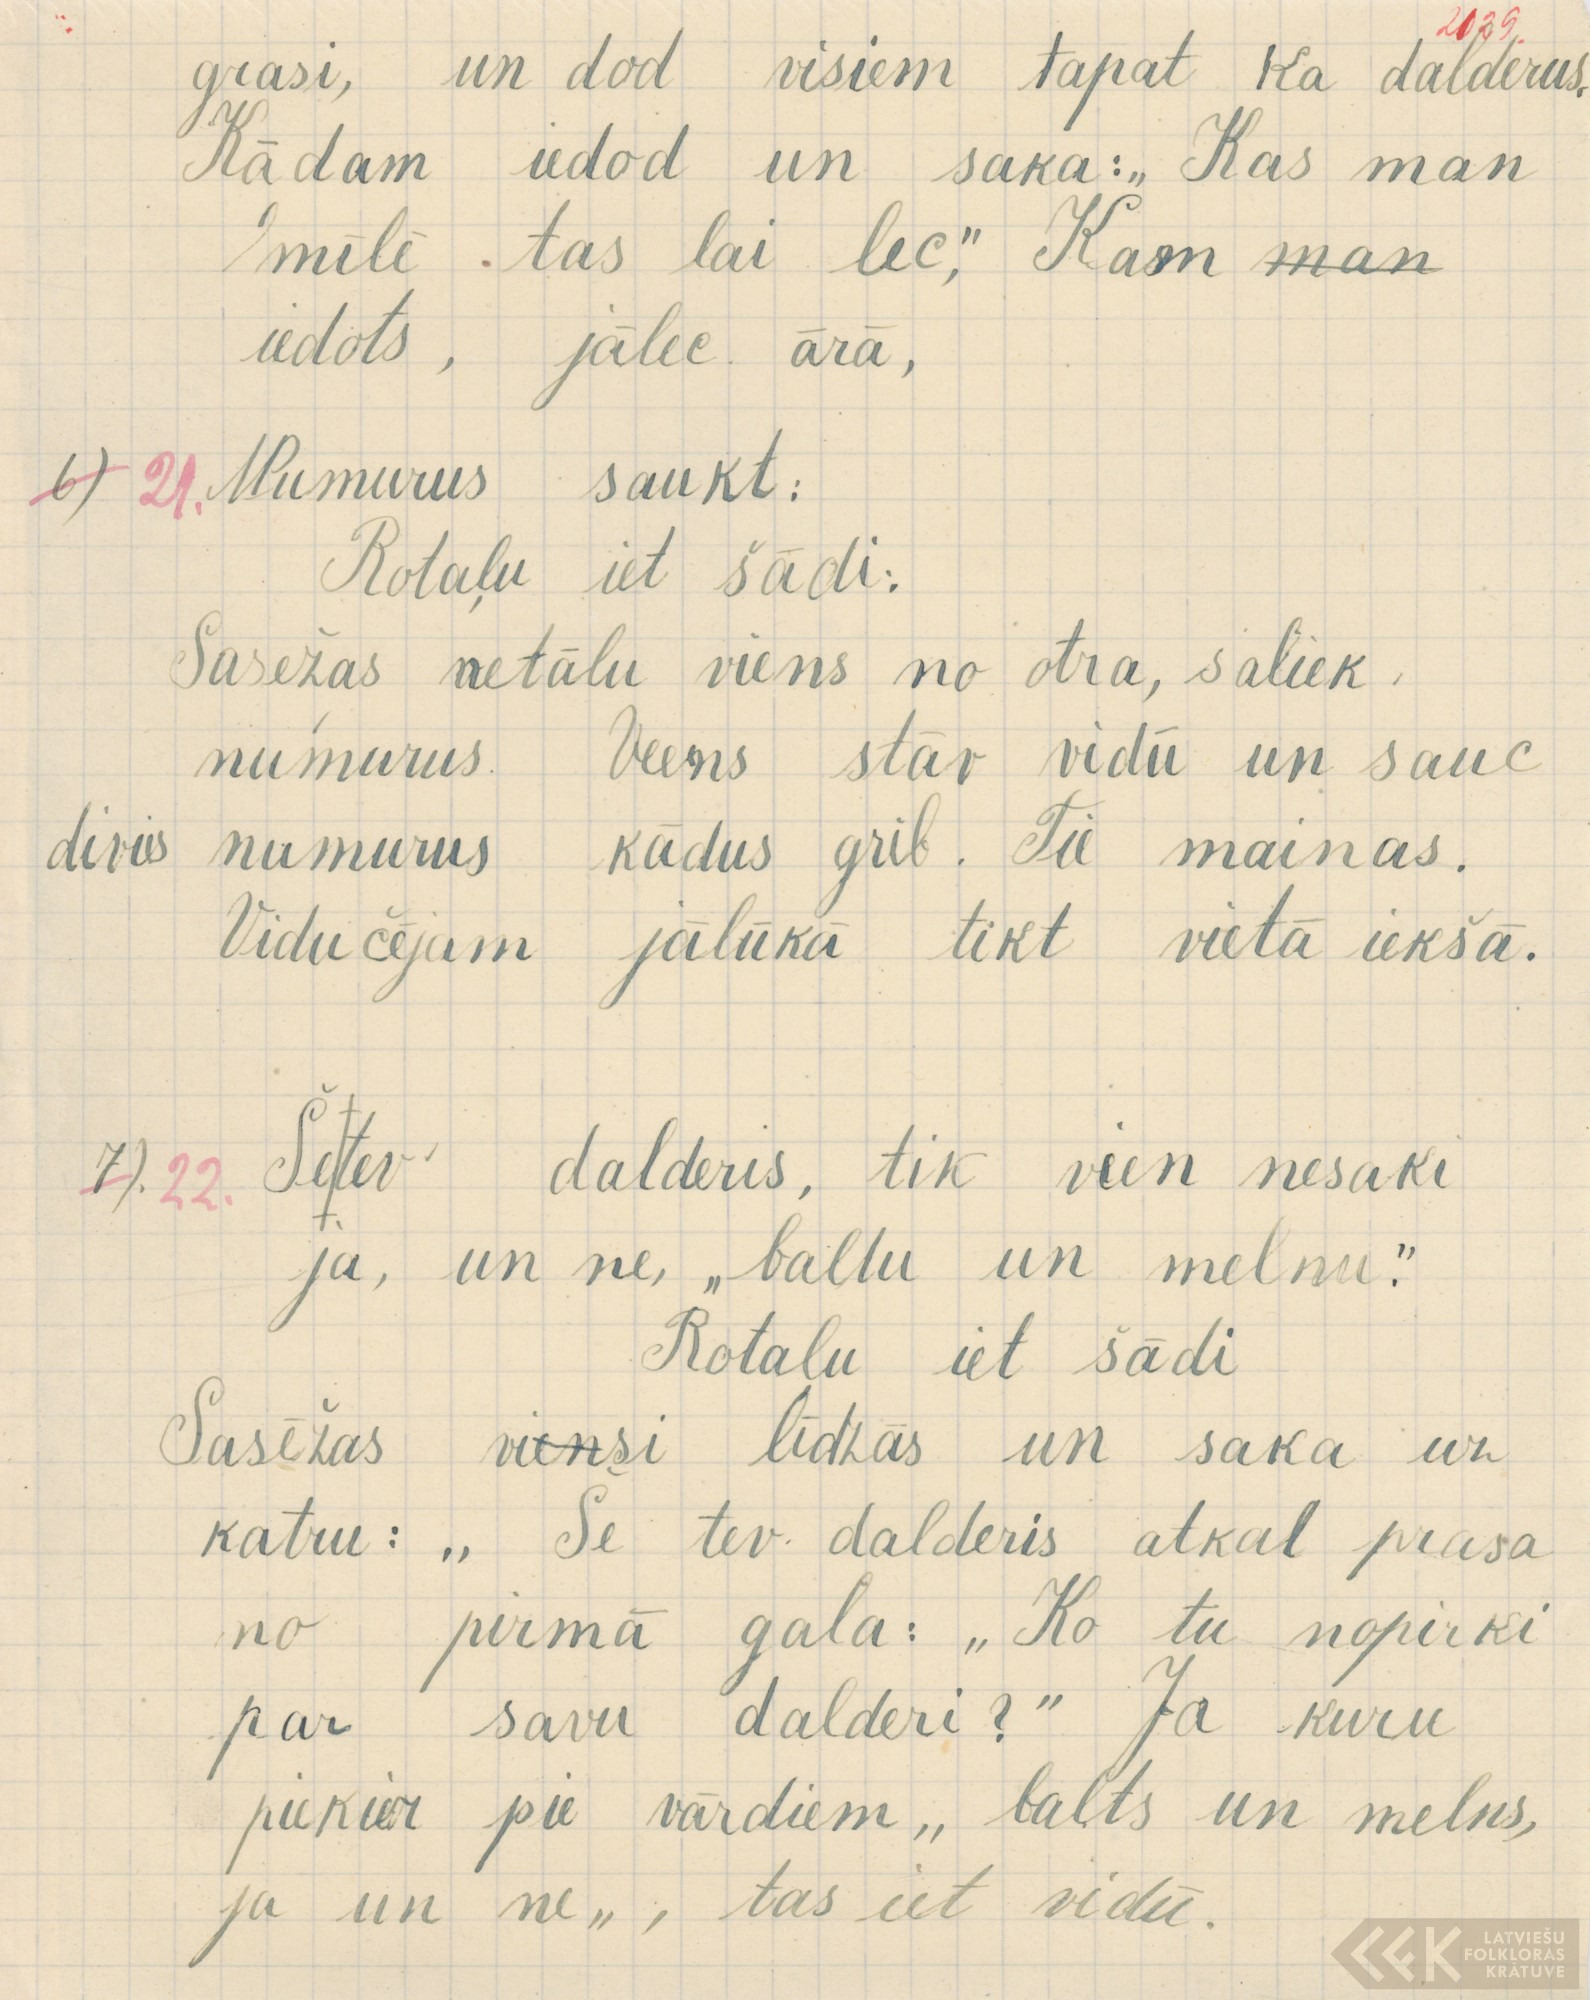 2039.
grasi, un dod visiem tapat ka dalderus.
Kādam iedod un saka: „Kas man
mīlē tas lai lec,” Kam man
iedots, jālec ārā,
6) 21. Numurus saukt:
Rotaļu iet šādi:
Sasēžas netālu viens no otra, saliek
numurus. Viens stāv vidū un sauc
divus numurus kādus grib. Tie mainas.
Vidučējam jālūkā tikt vietā iekšā.
7). 22. Še tev dalderis, tik vien nesaki
ja, un ne, „baltu un melnu”.
Rotalu iet šādi
Sasēžas viensi līdzās un saka uz
katru: „ Še tev dalderis atkal prasa
no pirmā gala: „Ko tu nopirki
par savu dalderi?” Ja kuru
piekier pie vārdiem „ balts un melns,
ja un ne„, tas iet vidū.
LATVIEŠU
FOLKLORAS
KRĀTUVE